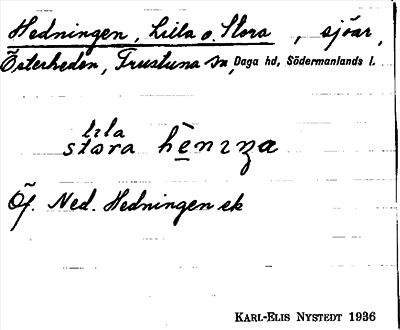 Hedningen, Lilla o. Stora, sjöar,
Österheden, Frustuna sn, Daga hd, Södermanlands l.
lila
stora hènıŋa
Öf. Ned. Hedningen ek
KARL-ELIS NYSTEDT 1936